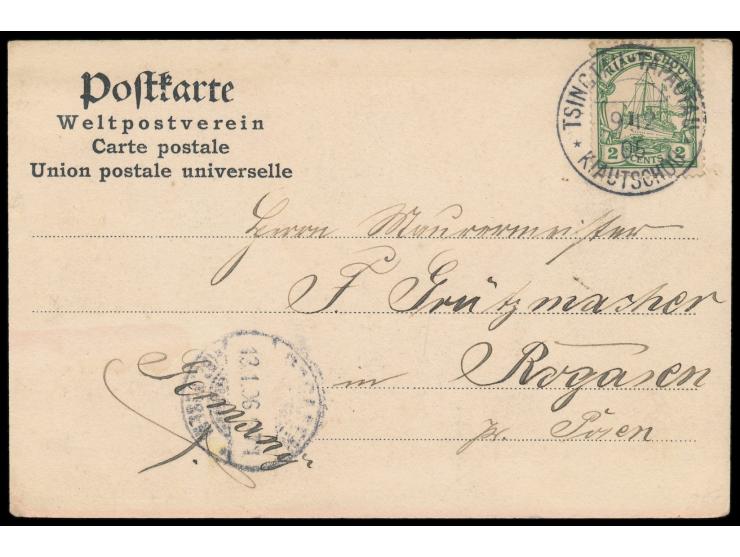 Postkarte
Weltpostverein
Carte postale
Union postale universelle
KIAUTSCHOU
2 CENTS 2
TSINGTAU TAPAUTAU
9 12
05
* KIAUTSCHOU *
Herrn Maurermeister
F. Grützmacher
in Rogasen
pr. Posen
Germany
13.1.06